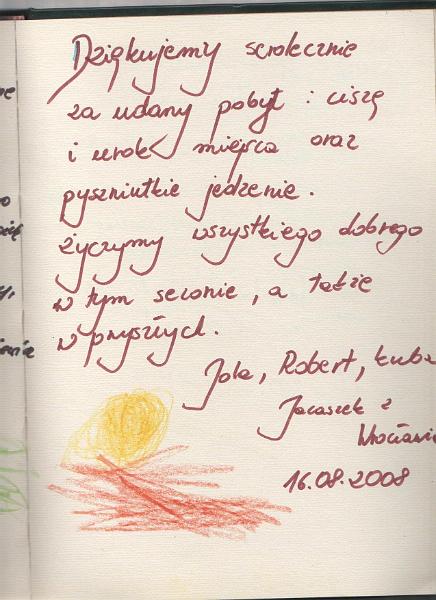 Dziękujemy serdecznie
za udany pobyt : ciszę
i urok miejsca oraz
pyszniutkie jedzenie.
życzymy wszystkiego dobrego
w tym sezonie, a także
w przyszłych.
Jola, Robert, Łuka
Jacaszek z
16.08.2008